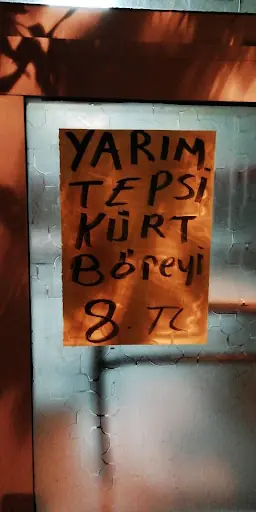 YARIM
TEPSİ
KÜRT
Böreyi
8. TL